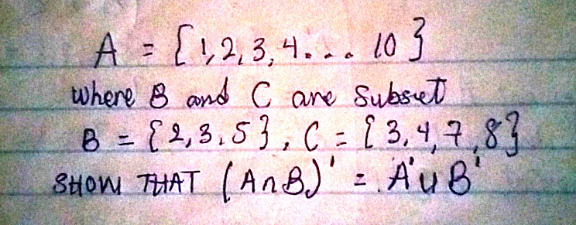 A = {1,2,3,4... 10}
where B and C are Subset
B = {2,3,5}, C = {3,4,7,8}
SHOW THAT (A∩B)' = A'∪B'